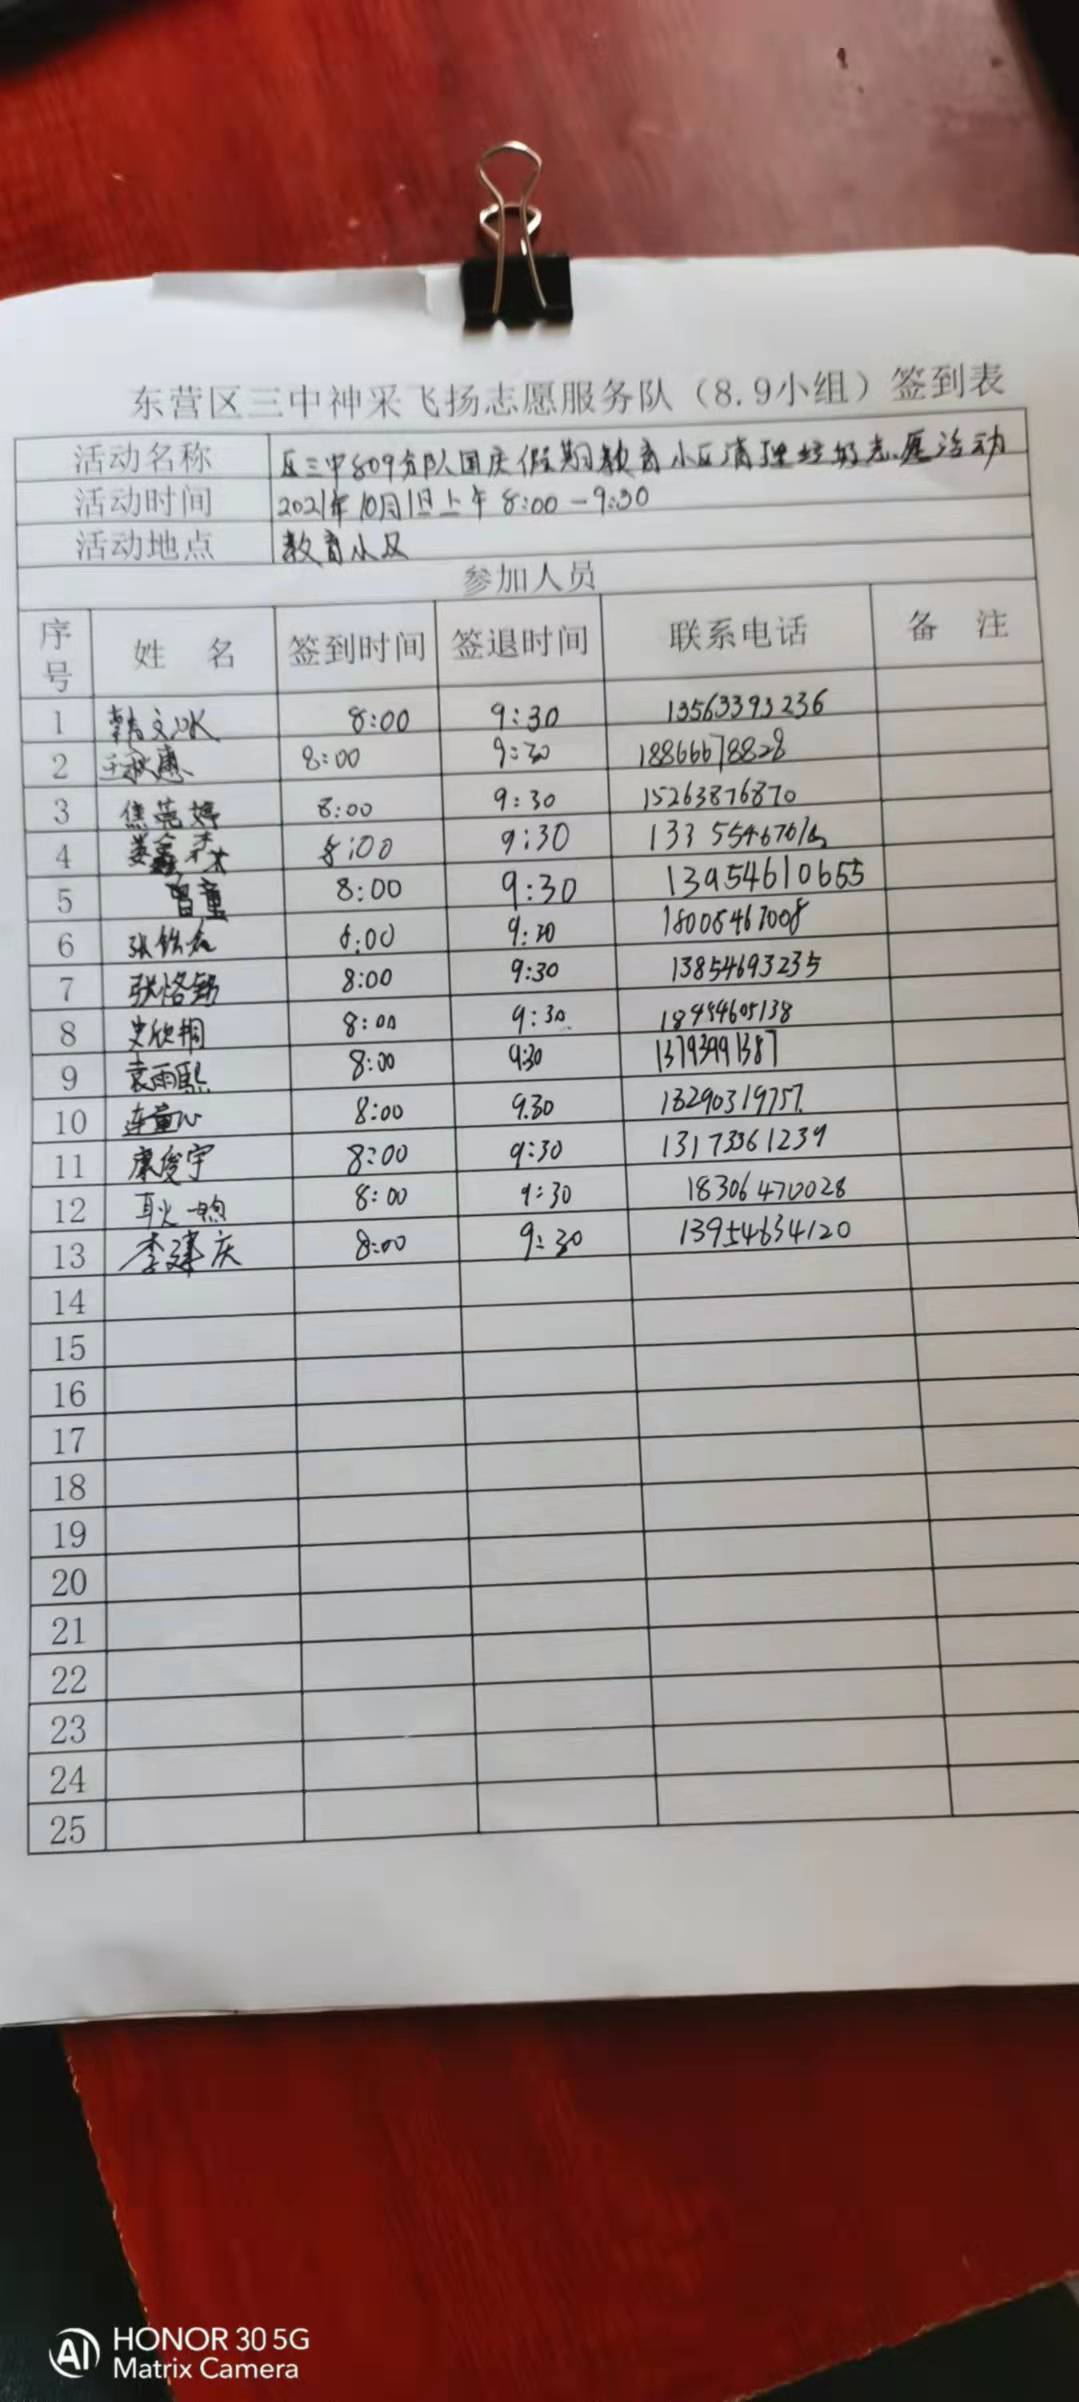 东营区三中神采飞扬志愿服务队（8.9小组）签到表
活动名称 区三中809分队国庆假期教育小区清理垃圾志愿活动
活动时间 2021年10月1日上午8:00-9:30
活动地点 教育小区
参加人员
序号 姓 名 签到时间 签退时间 联系电话 备 注
1 韩文冰 8:00 9:30 13563393236
2 王秋惠 8:00 9:30 18866678828
3 焦莞婷 8:00 9:30 15263876870
4 娄鑫森 8:00 9:30
5 曾童 8:00 9:30 13954610655
6 8:00 9:30 18005467008
7 张恪铭 8:00 9:30 13854693235
8 史欣桐 8:00 9:30 18954605138
9 袁雨熙 8:00 9:30 13793991387
10 连童心 8:00 9:30 13290319757
11 康俊宇 8:00 9:30 13173361239
12 耿一煦 8:00 9:30 18306470028
13 李建庆 8:00 9:30 13954634120
14
15
16
17
18
19
20
21
22
23
24
25
AI HONOR 30 5G
Matrix Camera